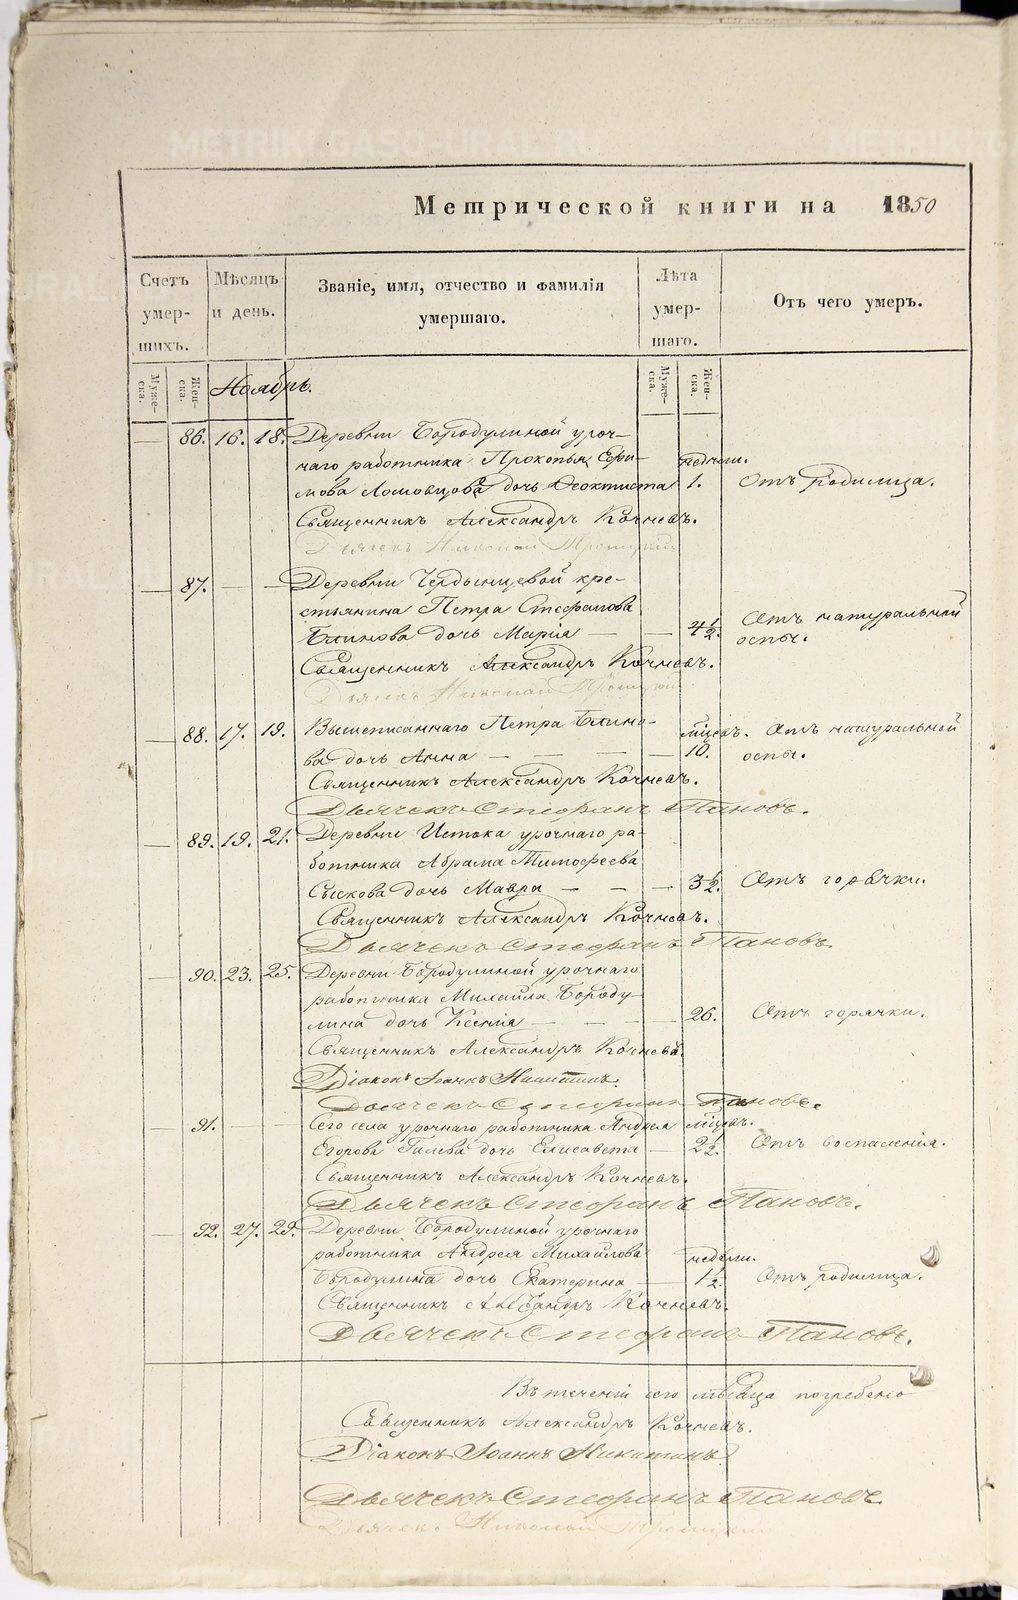 METRIKI.GASO-URAL.RU
Метрической книги на 1850
Счетъ умер-шихъ.
Мѣсяцъ и день.
Званіе, имя, отчество и фамилія умершаго.
Лѣта умер-шаго.
Отъ чего умеръ.
Муже-ска.
Жен-ска.
Муже-ска.
Жен-ска.
Ноябрь.
— 86. 16. 18. Деревни Бородулиной уроч-
наго работника Прокопья Ефи- недѣли.
мова Ломовцова дочь Феоктиста 1. Отъ родимца.
Священникъ Александръ Кочневъ.
Дьячекъ Николай Троицкій
— 87. — — Деревни Чердынцевой кре-
стьянина Петра Стефанова
Блинова дочь Марія — — 4½. Отъ натуральной оспы.
Священникъ Александръ Кочневъ.
Дьячекъ Николай Троицкій
— 88. 17. 19. Вышеписаннаго Петра Блино- мѣсец. Отъ натуральной
ва дочь Анна — — — — 10. оспы.
Священникъ Александръ Кочневъ.
Дьячекъ Стефанъ Пановъ.
— 89. 19. 21. Деревни Истока урочнаго ра-
ботника Абрама Тимофеева
Сыскова дочь Мавра — — — 3½. Отъ горячки.
Священникъ Александръ Кочневъ.
Дьячекъ Стефанъ Пановъ
— 90. 23. 25. Деревни Бородулиной урочнаго
работника Михайла Бороду-
лина дочь Ксенія — — — — 26. Отъ горячки.
Священникъ Александръ Кочневъ.
Діаконъ Іоаннъ Никитинъ.
Дьячекъ Стефанъ Пановъ.
— 91. — — Сего села урочнаго работника Андрея мѣсец.
Егорова Гилева дочь Елисавета — 2½. Отъ воспаленія.
Священникъ Александръ Кочневъ.
Дьячекъ Стефанъ Пановъ.
— 92. 27. 29. Деревни Бородулиной урочнаго
работника Андрея Михайлова недѣли.
Бородулина дочь Екатерина — 1½. Отъ родимца.
Священникъ Александръ Кочневъ.
Дьячекъ Стефанъ Пановъ.
Въ теченіи сего мѣсяца погребено
Священникъ Александръ Кочневъ.
Діаконъ Іоаннъ Никитинъ
Дьячекъ Стефанъ Пановъ
Дьячекъ Николай Троицкій